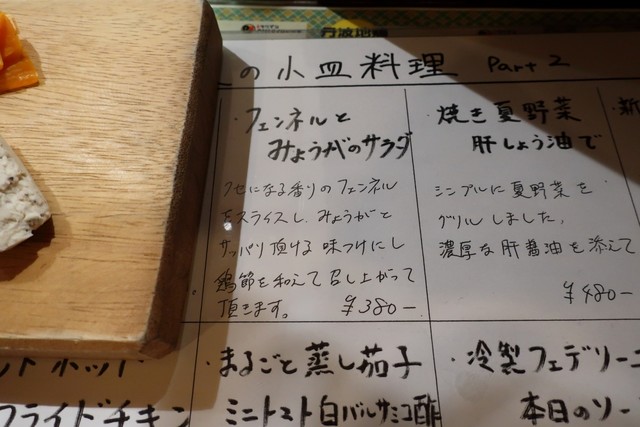 丹波地鶏
の小皿料理 Part 2
・フェンネルと
みょうがのサラダ
クセになる香りのフェンネル
をスライスし、みょうがと
サッパリ頂ける味つけにし
鶏節を和えて召し上がって
頂きます。 ¥380−
・焼き夏野菜
肝しょう油で
シンプルに夏野菜を
グリルしました。
濃厚な肝醤油を添えて
¥480−
・新
フライドチキン
・まるごと蒸し茄子
ミニトマト白バルサミコ酢
・冷製フェデリーニ
本日のソー